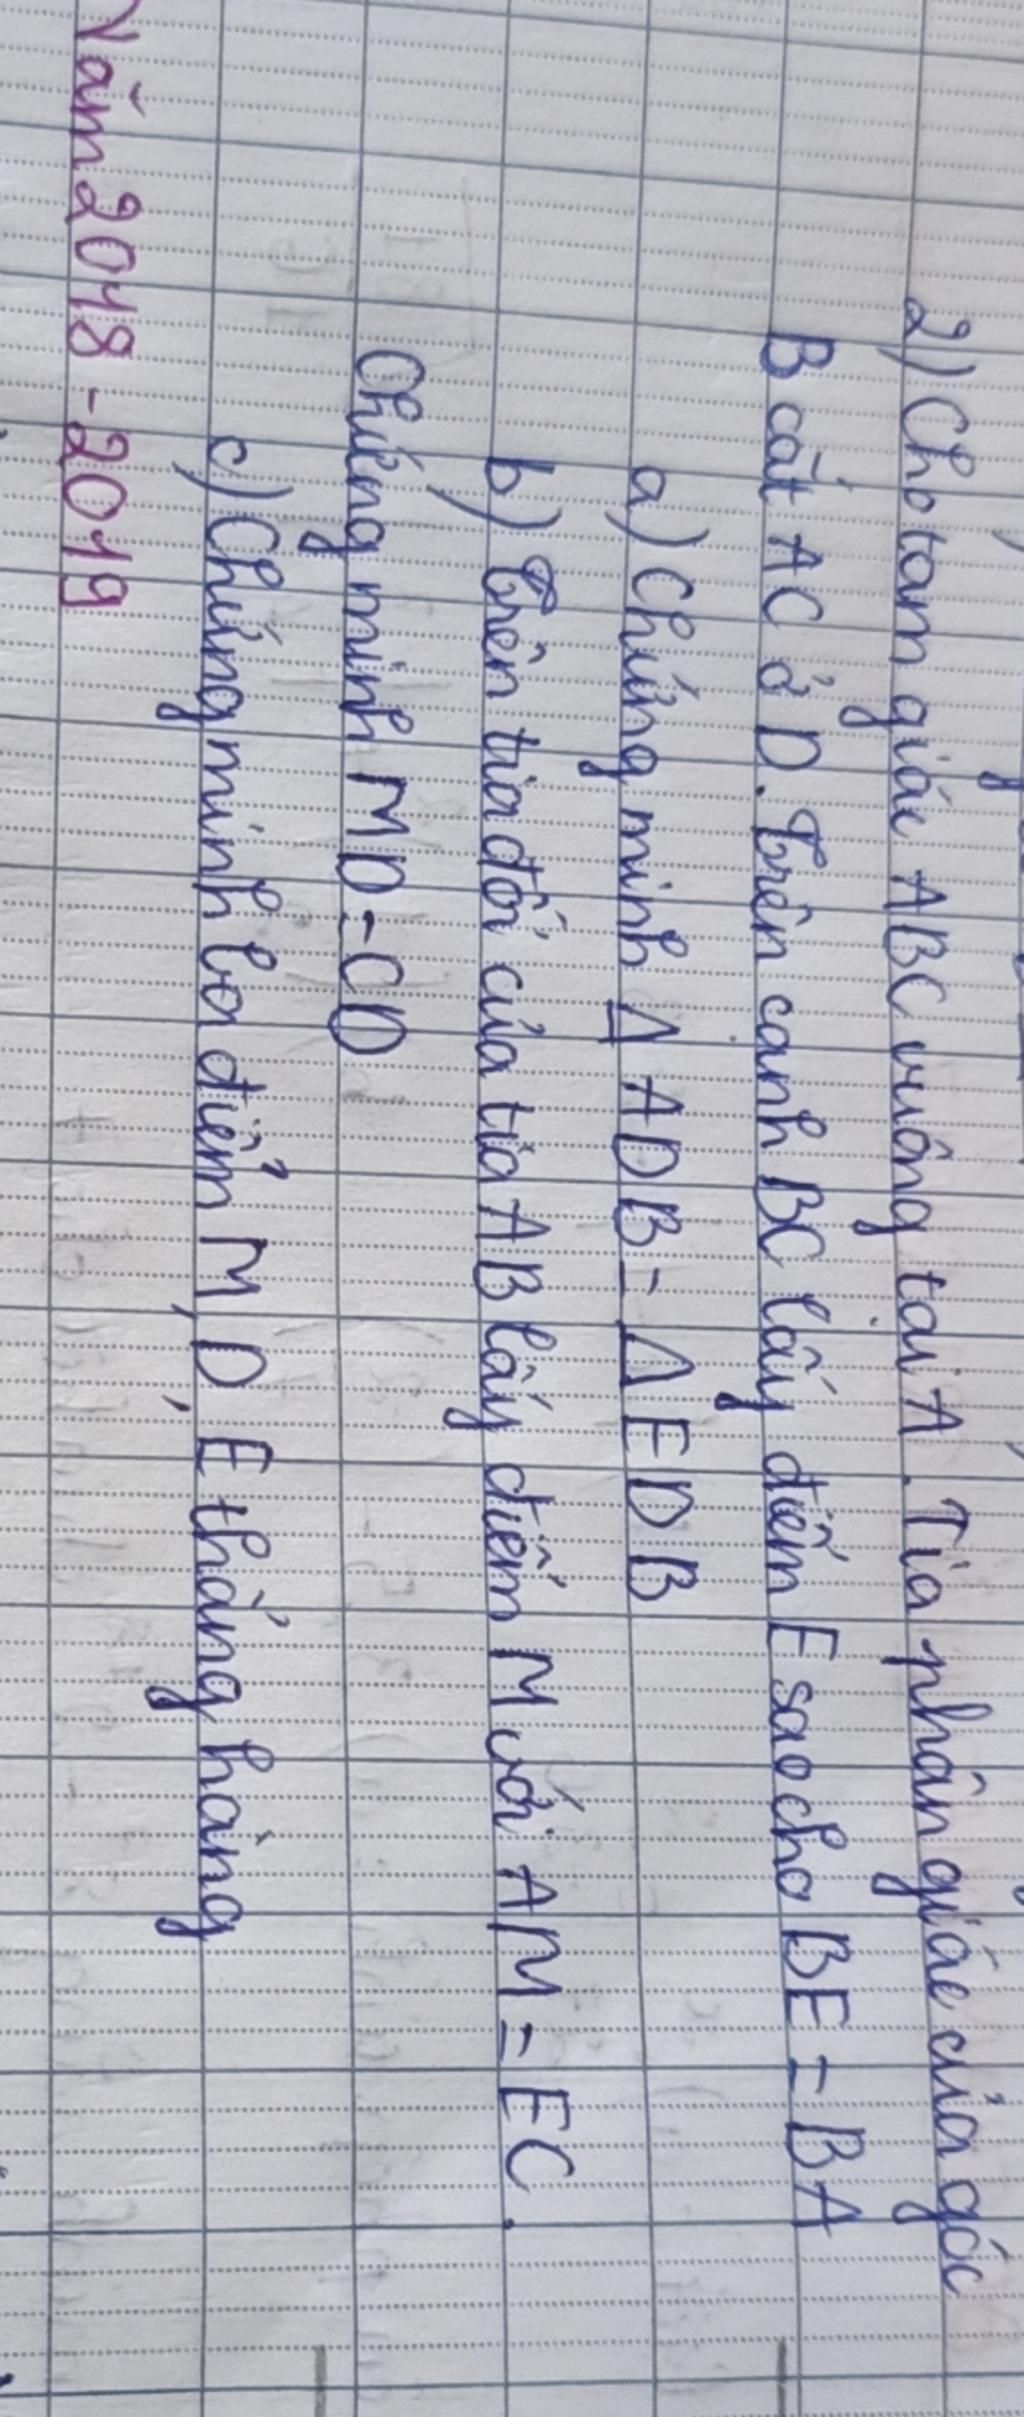 2) Cho tam giác ABC vuông tại A. Tia phân giác của góc
B cắt AC ở D. Trên cạnh BC lấy điểm E sao cho BE = BA
a) Chứng minh Δ ADB = Δ EDB
b) Trên tia đối của tia AB lấy điểm M với AM = EC.
Chứng minh MD = CD
c) Chứng minh ba điểm M, D, E thẳng hàng
Năm 2018 - 2019